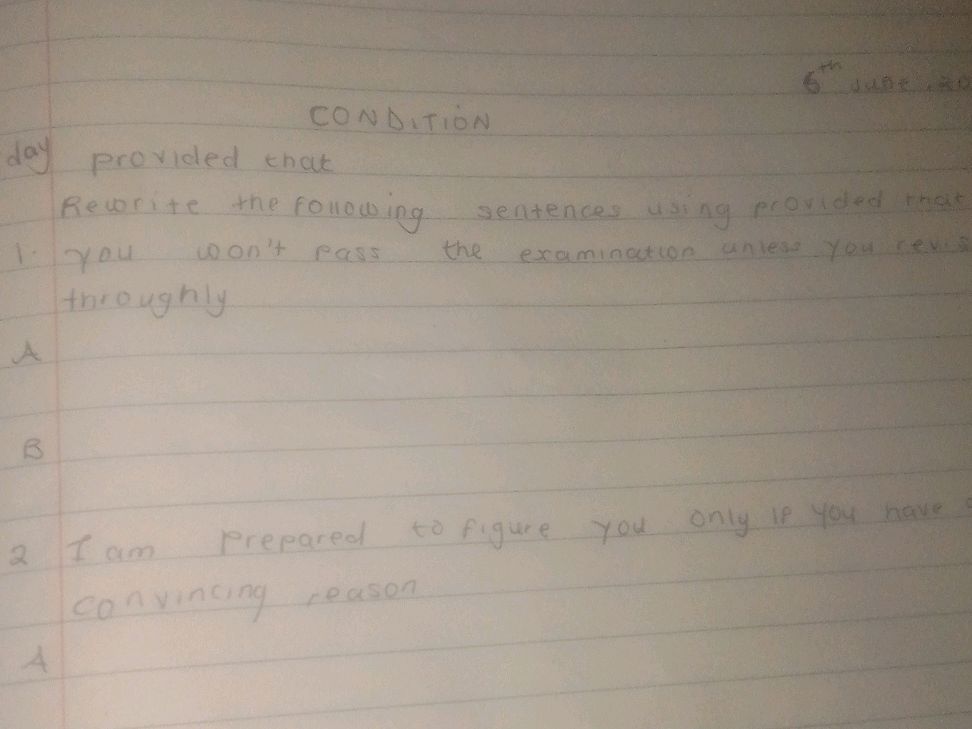 6th June, 20
CONDITION
day provided that
Rewrite the following sentences using provided that
1. you won't pass the examination unless you revis
throughly
A
B
2 I am prepared to figure you only if you have
convincing reason
A